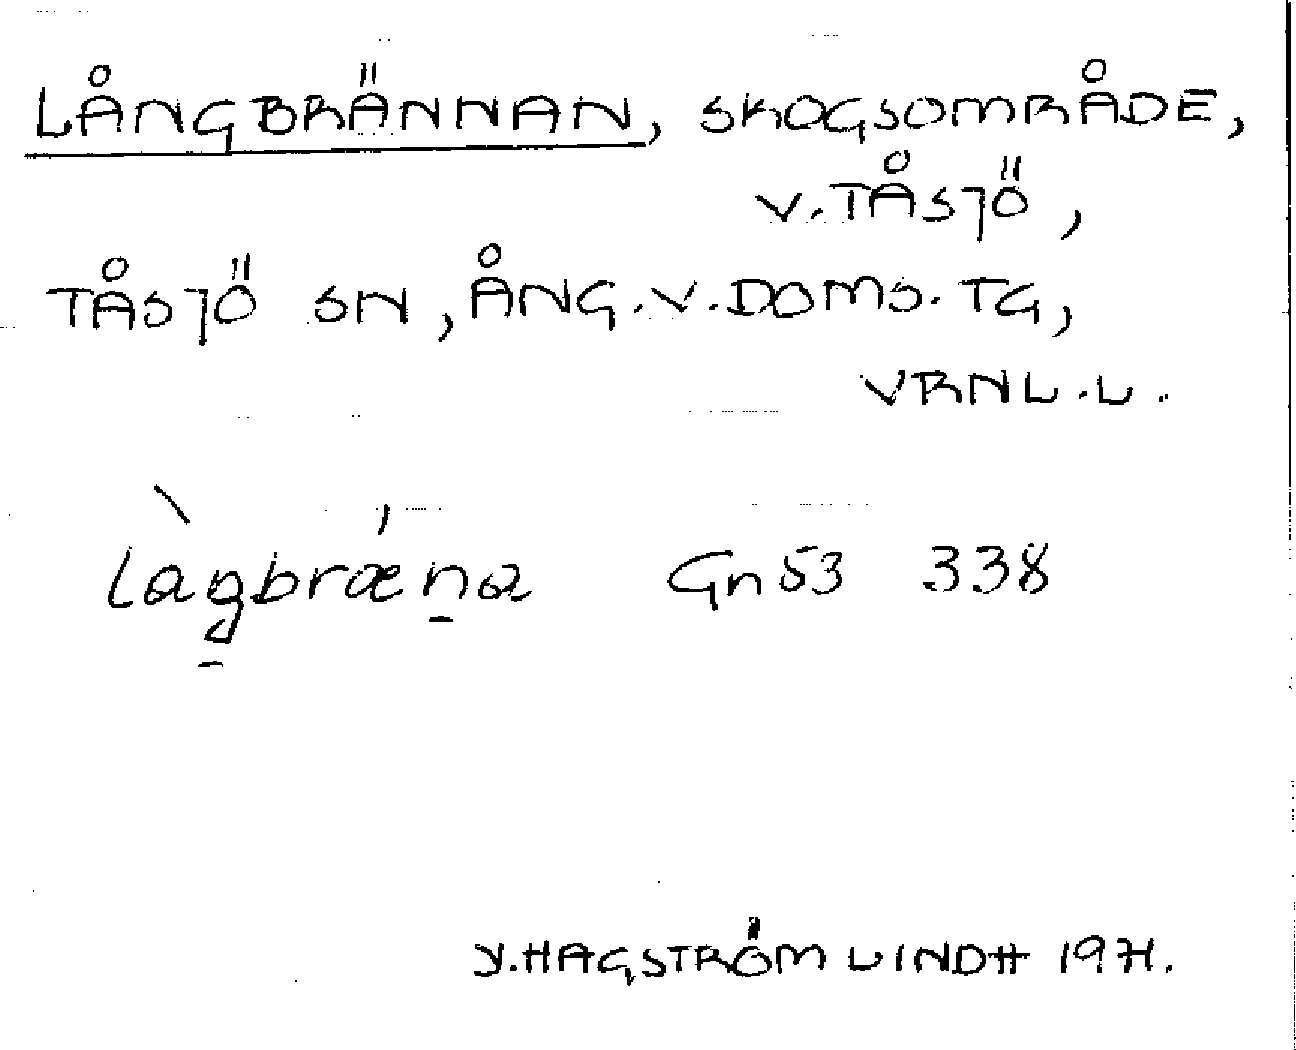 LÅNGBRÄNNAN, SKOGSOMRÅDE,
V. TÅSJÖ,
TÅSJÖ SN, ÅNG. V. DOMS. TG,
VRNL. L.
Gn 53 338
Y. HAGSTRÖM LINDH 1971.